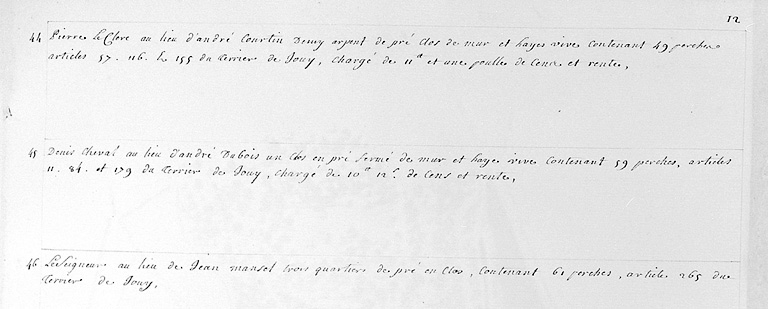 12
44 Pierre le Clerc au lieu d'andré Courtin Demy arpent de pré Clos de mur et hayes vive Contenant 49 perches
articles 57. 116. & 155 du terrier de Jouy, chargé de 11d et une poulle de Cens et rente,
45 Denis Cheval au lieu d'andré Dubois un Clos en pré fermé de mur et haye vive Contenant 59 perches, articles
11. 84. et 179 du terrier de Jouy, chargé de 10d 12s. de Cens et rente,
46 Le Seigneur au lieu de Jean mansel trois quartiers de pré en Clos, Contenant 61 perches, article 265 du
terrier de Jouy,